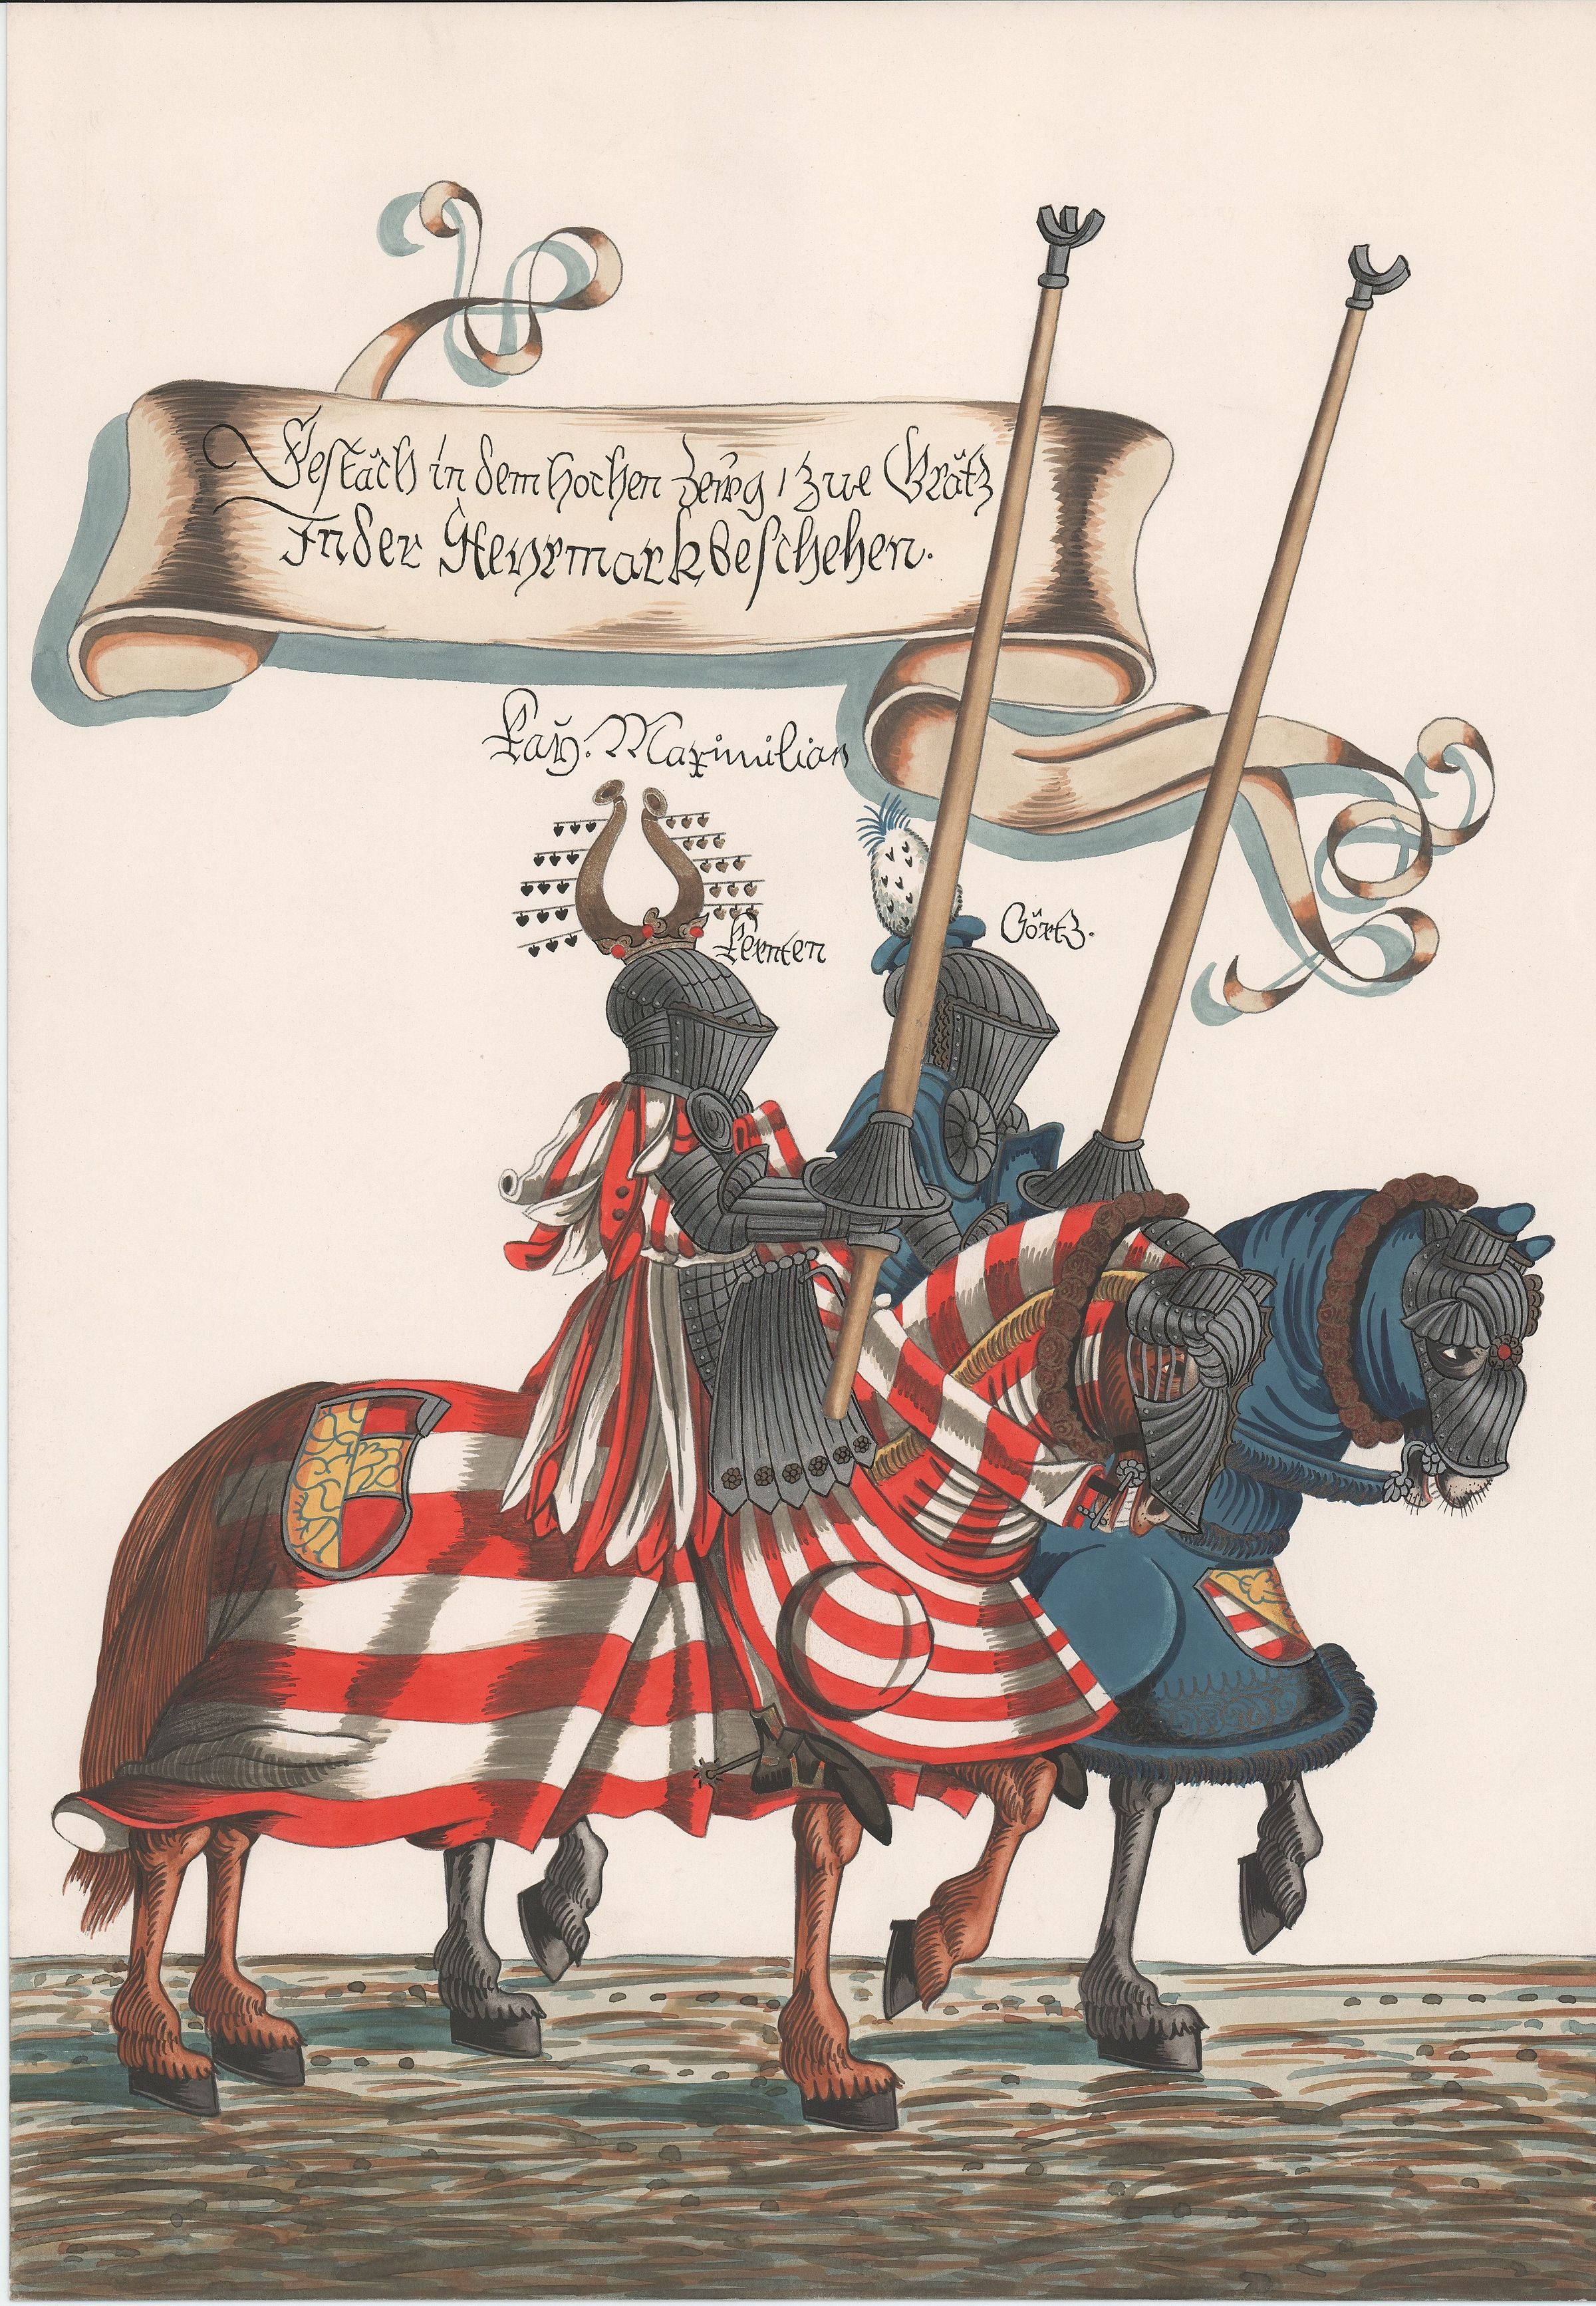 Gestäch in dem hochen Zeüg / zue Grätz
In der Steyrmark beschehen.
Kaÿ. Maximilian
Kernten
Görtz.